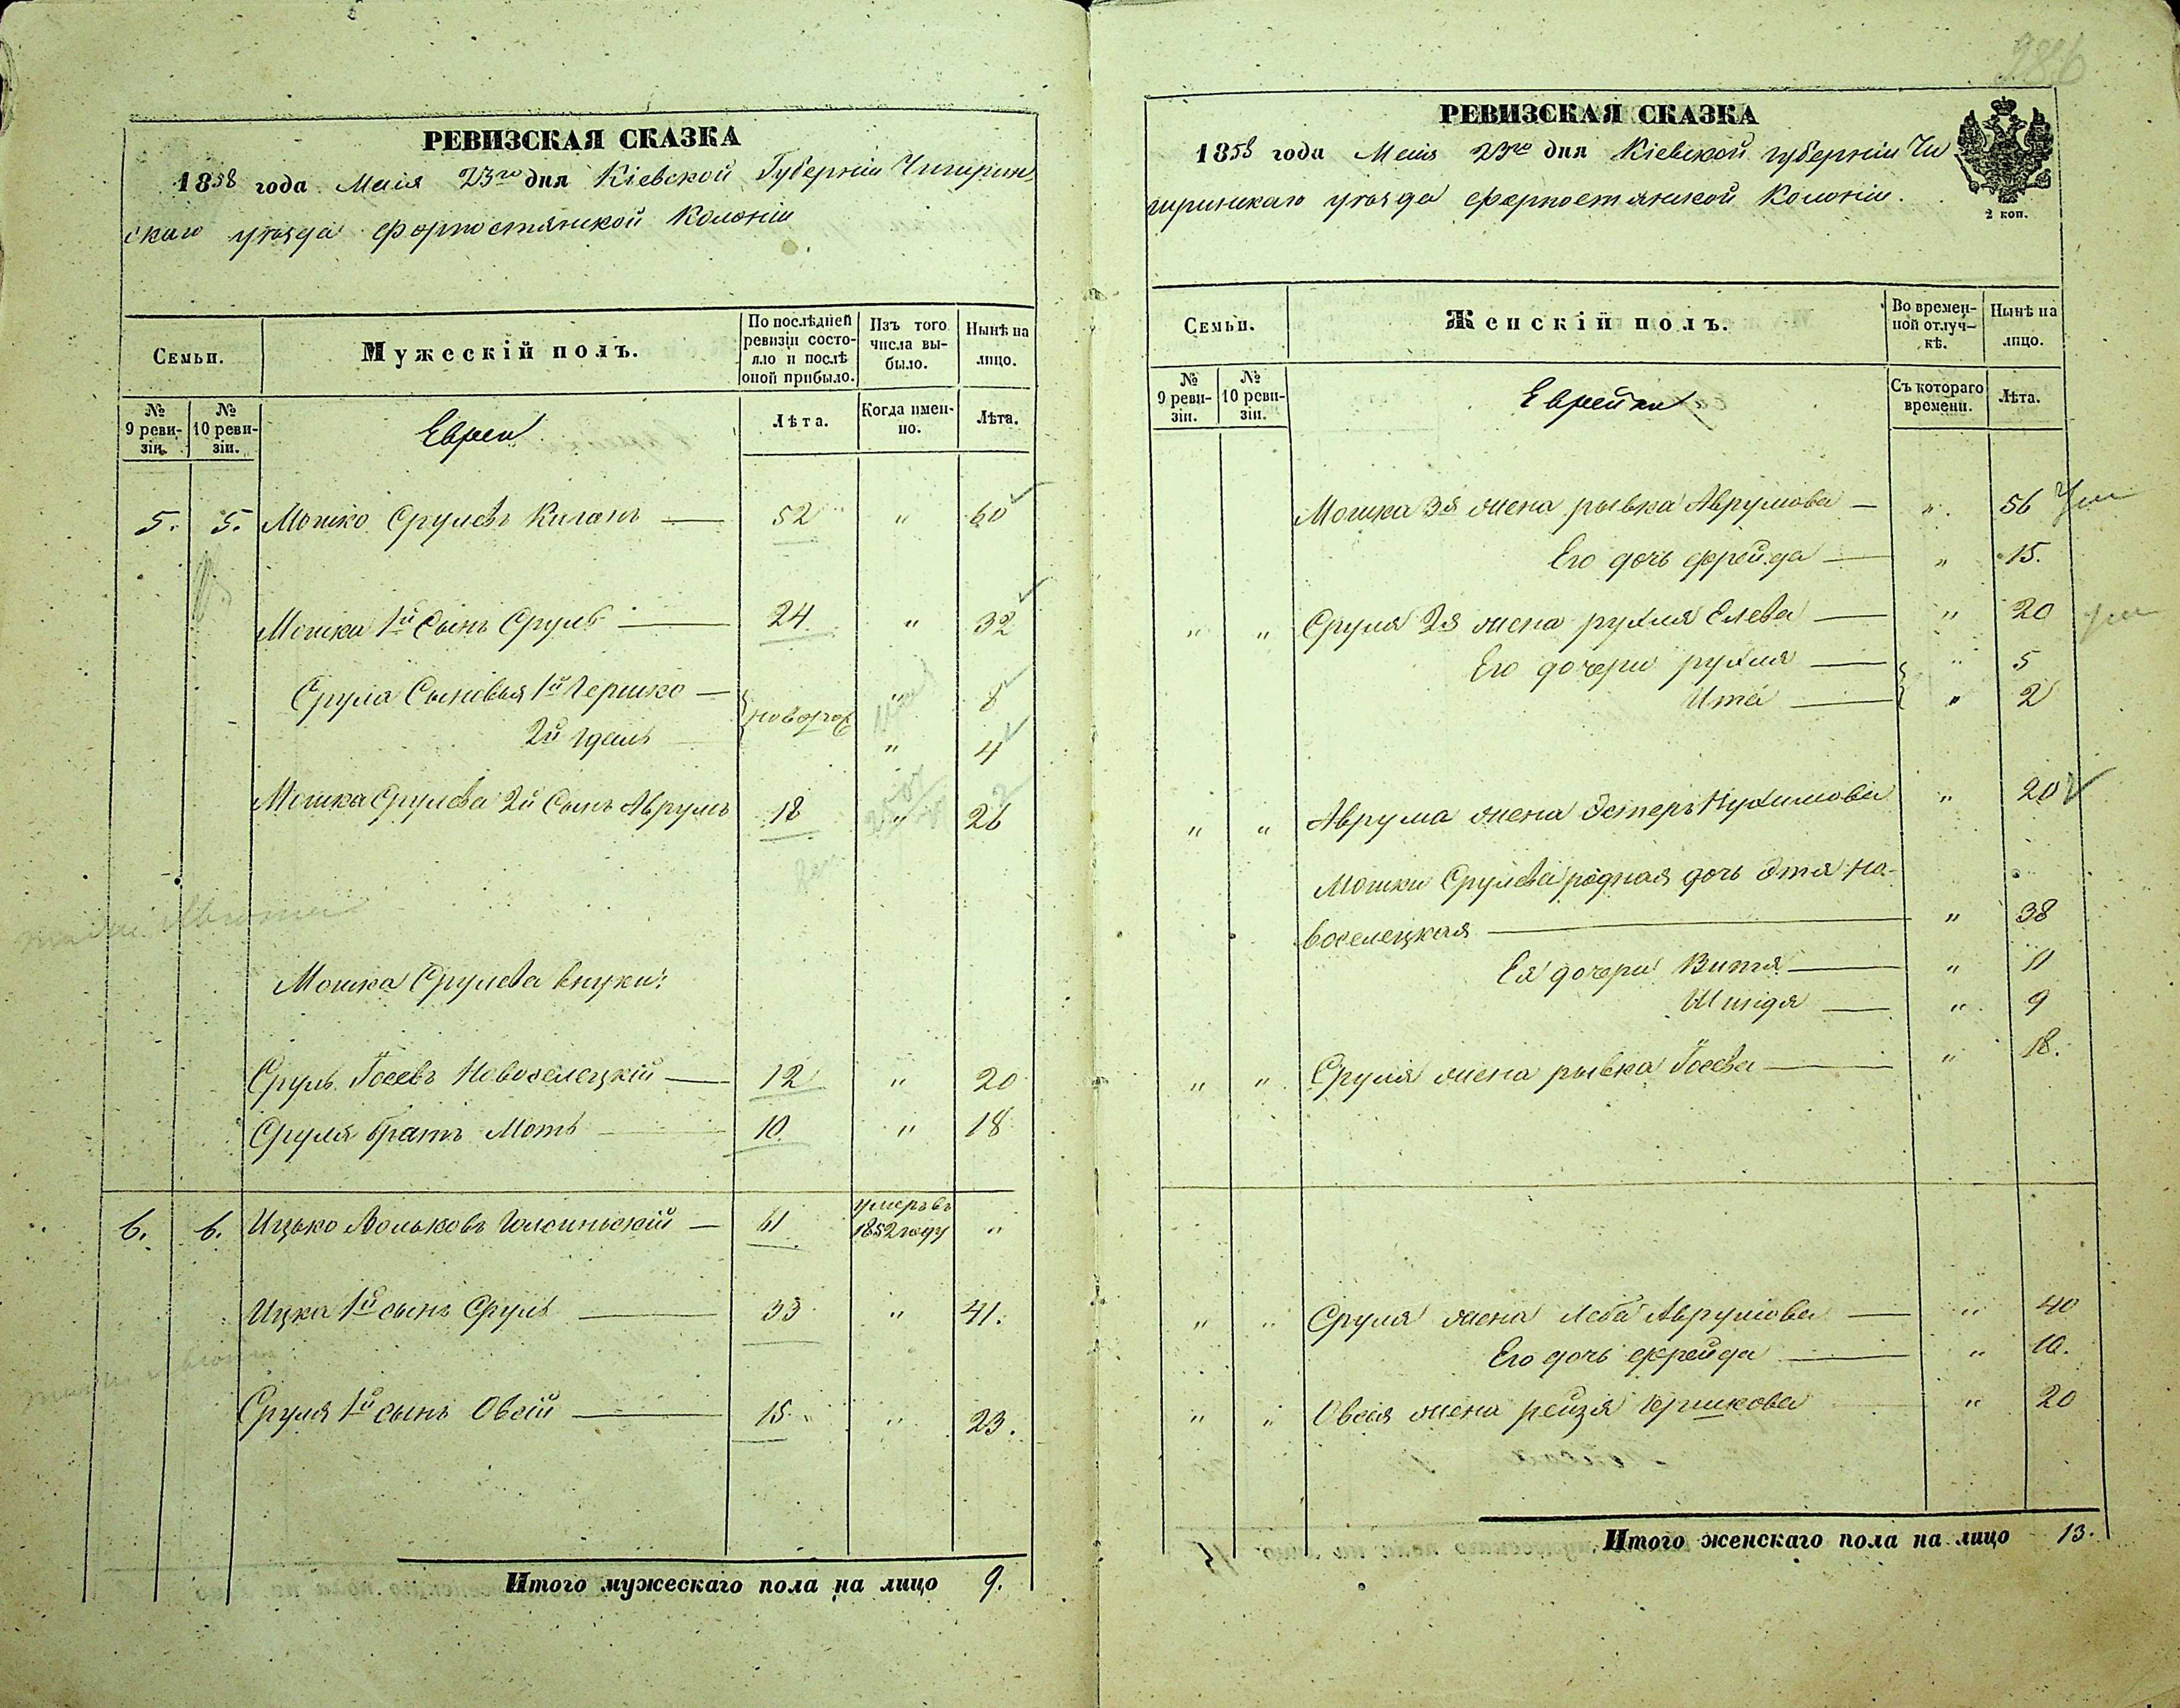 РЕВИЗСКАЯ СКАЗКА
1858 года Маія 23го дня Кіевской Губерніи Чигирин
скаго уѣзда форпостянской Колоніи
Семьи.
Мужескій полъ.
По послѣдней ревизіи состояло и послѣ оной прибыло.
Изъ того числа выбыло.
Нынѣ на лицо.
№ 9 ревизіи.
№ 10 ревизіи.
Евреи
Лѣта.
Когда именно.
Лѣта.
5. 5. Мошко Срулевъ — 52 " 60
Мошка 1й Сынъ Сруль — 24 " 32
Сруля Сыновья 1й Гершко — новорож " 8
2й Идель — " 4
Мошка Срулева 2й Сынъ Аврумъ 18 " 26
Мошка Срулева внуки:
Сруль Іосевъ Новоселецкій — 12 " 20
Сруля братъ Мотъ — 10 " 18
6. 6. Ицько Вольковъ — 61 умеръ въ 1852 году "
Ицка 1й сынъ Сруль — 33 " 41.
Сруля 1й сынъ Овсій — 15 " 23.
Итого мужескаго пола на лицо 9.
286
РЕВИЗСКАЯ СКАЗКА
1858 года Маія 23го дня Кіевской губерніи Чи
гиринскаго уѣзда форпостянской Колоніи.
2 коп.
Семьи.
Женскій полъ.
Во временной отлучкѣ.
Нынѣ на лицо.
№ 9 ревизіи.
№ 10 ревизіи.
Еврейки
Съ котораго времени.
Лѣта.
Мошка 3я жена рывка Аврумова — " 56
Его дочь фрейда — " 15.
" " Сруля 2я жена рухля Елева — " 20
Его дочери рухля — " 5
Ита — " 2
" " Аврума жена Эстеръ Нухимова " 20
Мошки Срулева родная дочь Этя Но-
воселецкая — " 38
Ея дочери Витя — " 11
Шендя — " 9
" " Сруля жена рывка Іосева — " 18.
" " Сруля жена Леба Аврумова — " 40
Его дочь фрейда — " 10.
" " Овсія жена рейзя Гершкова " 20
Итого женскаго пола на лицо 13.